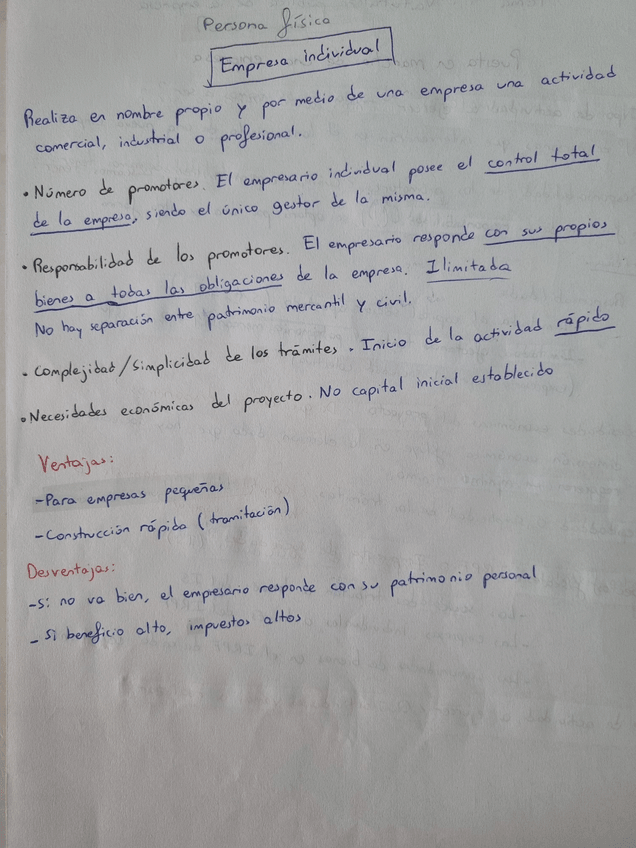 Persona física
Empresa individual
Realiza en nombre propio y por medio de una empresa una actividad
comercial, industrial o profesional.
• Número de promotores. El empresario individual posee el control total
de la empresa, siendo el único gestor de la misma.
• Responsabilidad de los promotores. El empresario responde con sus propios
bienes a todas las obligaciones de la empresa. Ilimitada
No hay separación entre patrimonio mercantil y civil.
• Complejidad/Simplicidad de los trámites. Inicio de la actividad rápido
• Necesidades económicas del proyecto. No capital inicial establecido
Ventajas:
- Para empresas pequeñas
- Construcción rápida (tramitación)
Desventajas:
- Si no va bien, el empresario responde con su patrimonio personal
- Si beneficio alto, impuestos altos